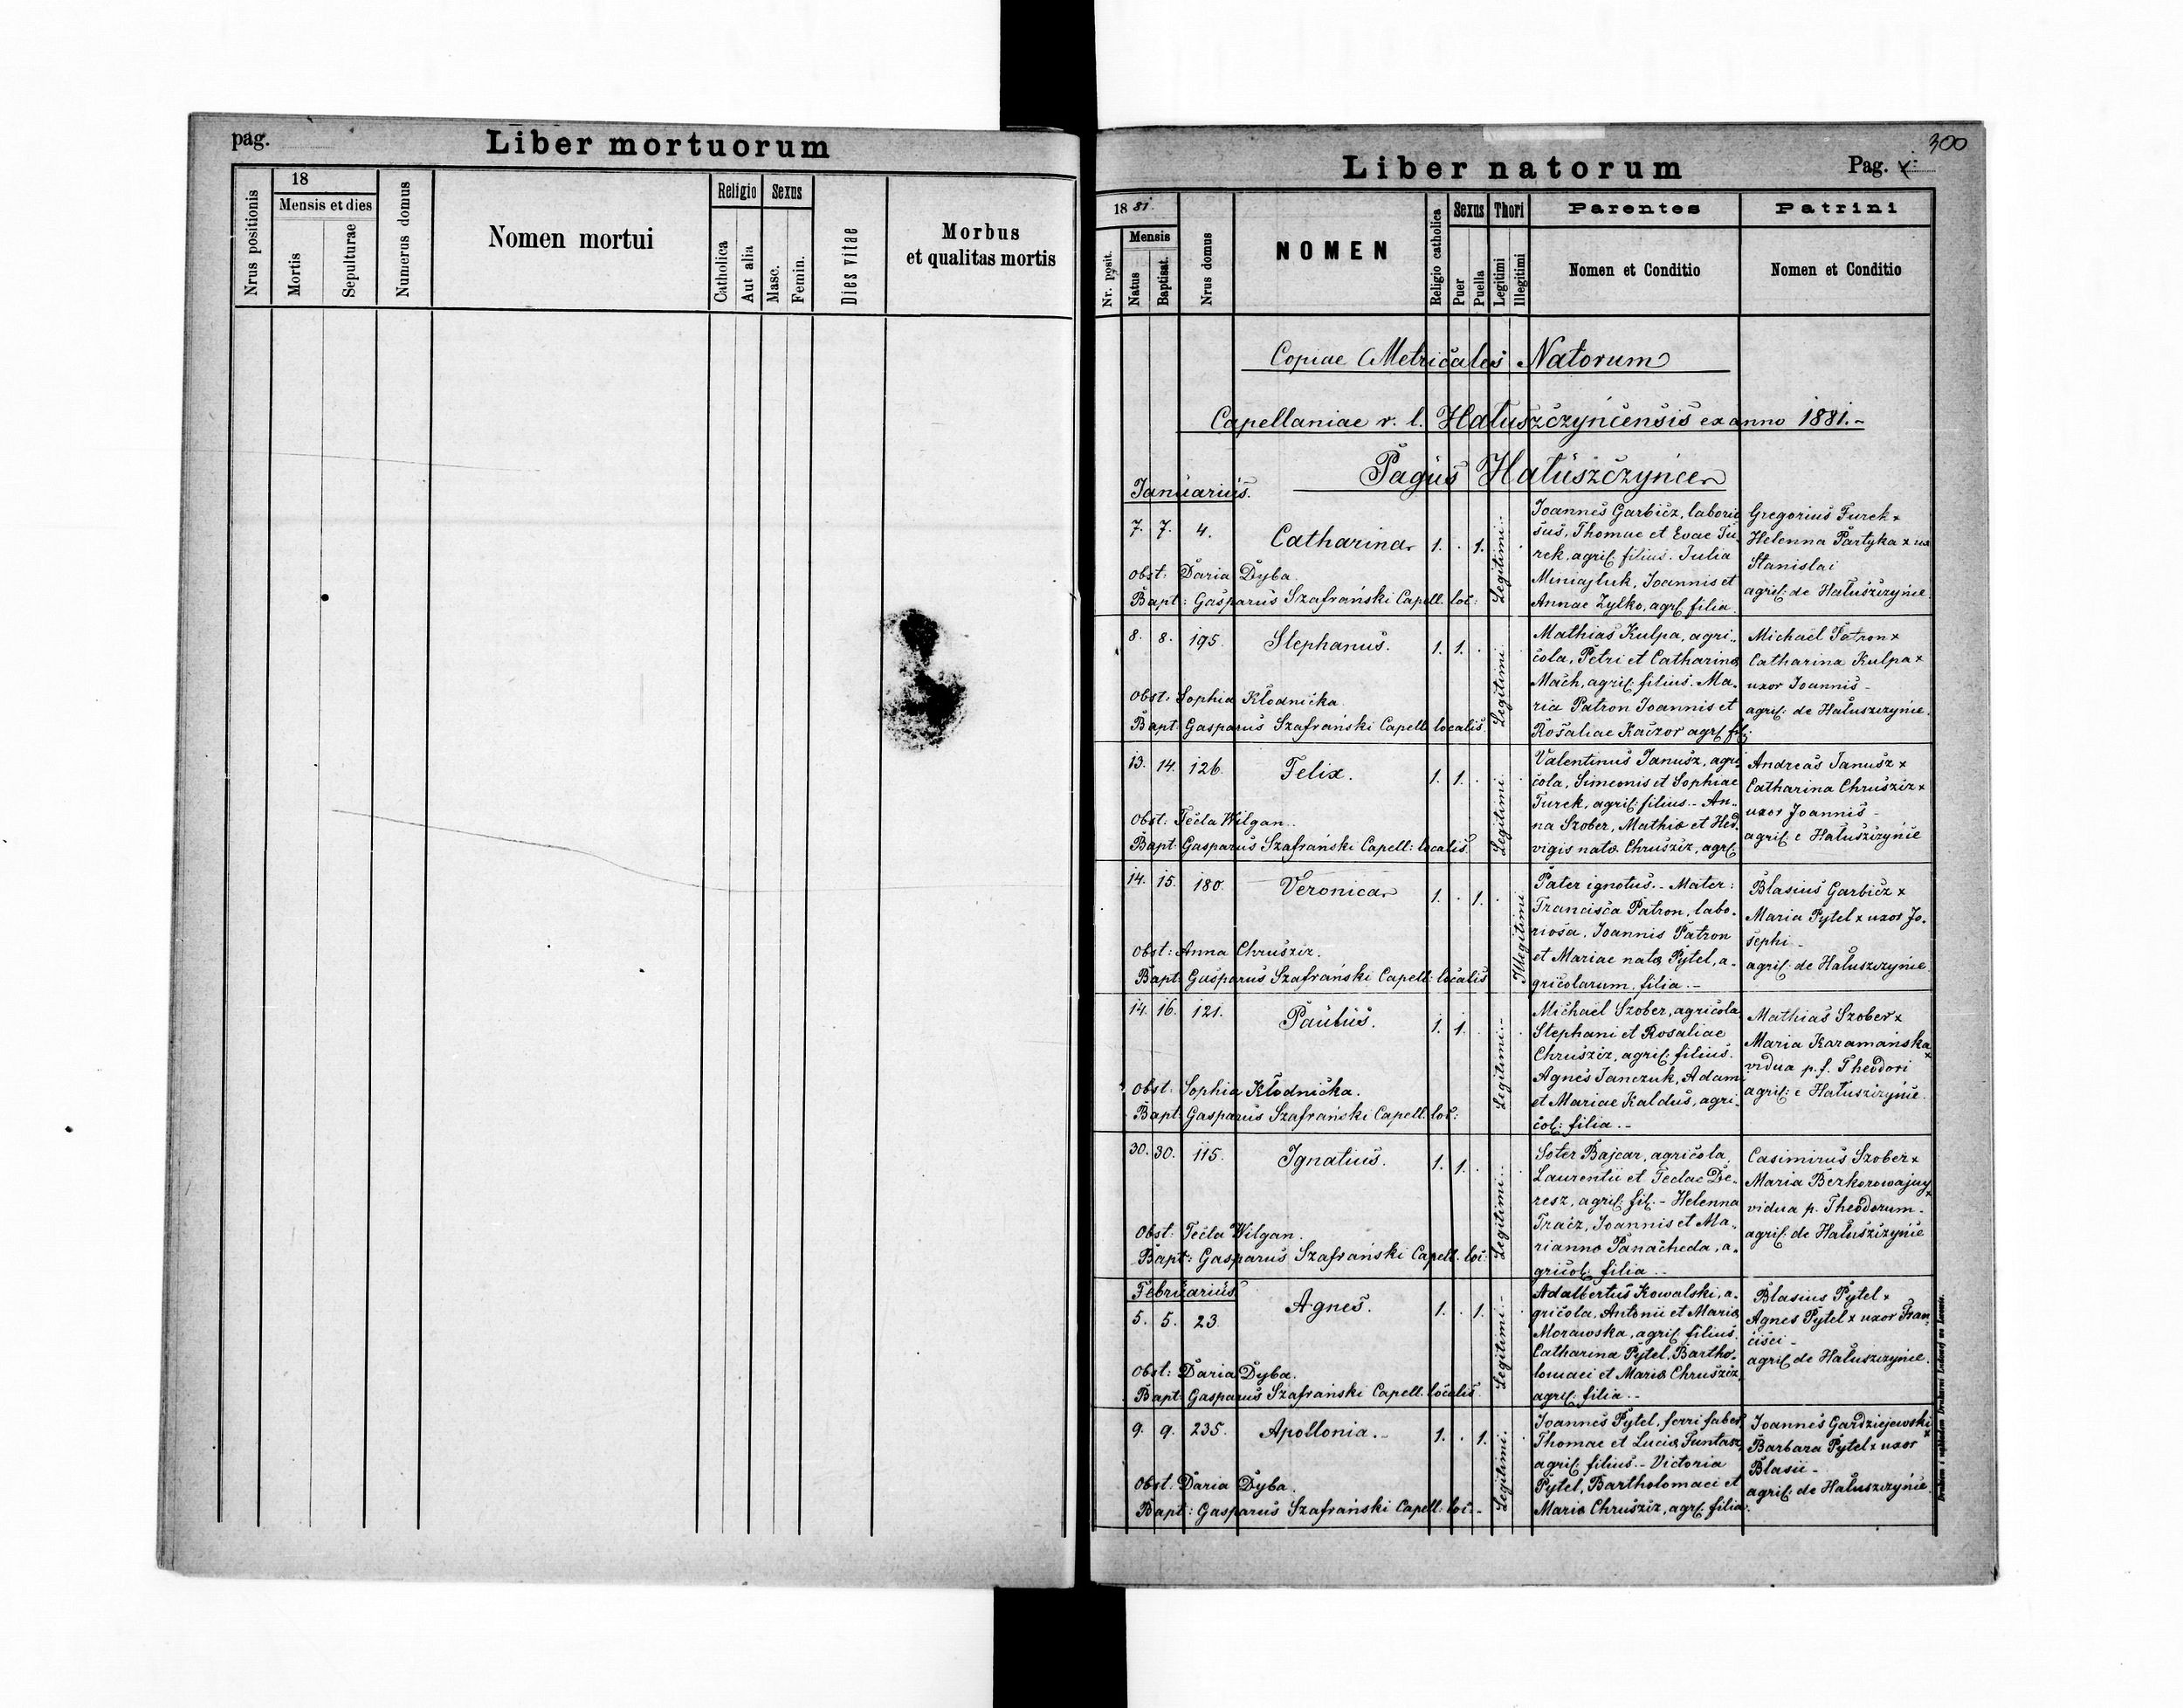 pag.
Liber mortuorum
Nrus positionis
18
Mensis et dies
Mortis
Sepulturae
Numerus domus
Nomen mortui
Religio
Catholica
Aut alia
Sexus
Masc.
Femin.
Dies vitae
Morbus
et qualitas mortis
300
Liber natorum
Pag.
Nr. posit.
1881.
Mensis
Natus
Baptisat.
Nrus domus
NOMEN
Religio catholica
Sexus
Puer
Puella
Thori
Legitimi
Illegitimi
Parentes
Nomen et Conditio
Patrini
Nomen et Conditio
Copiae Metricales Natorum
Capellaniae r. l. Hałuszczyncensis ex anno 1881.-
Pagus Hałuszczyńce
Januarius.
7. 7. 4. Catharina 1. . 1. Legitimi.-
Obst: Daria Dyba.
Bapt: Gasparus Szafrański Capell. loc:
Joannes Garbicz, laborio
sus, Thomae et Evae Tu-
rek, agric. filius. Julia
Miniajluk, Joannis et
Annae Zylko, agr. filia.
Gregorius Turek x
Helenna Partyka x ux
Stanislai
agric: de Hałuszczyńce.
8. 8. 195. Stephanus. 1. 1. . Legitimi.
Obst: Sophia Kłodnicka.
Bapt: Gasparus Szafrański Capell. localis.
Mathias Kulpa, agri-
cola, Petri et Catharinae
Mach, agric. filius. Ma-
ria Patron Joannis et
Rosaliae Kaczor agr. fil.
Michael Patron x
Catharina Kulpa x
uxor Joannis -
agric: de Hałuszczyńce.
13. 14. 126. Felix. 1. 1. . Legitimi.
Obst: Tecla Wilgan.
Bapt: Gasparus Szafrański Capell: localis.
Valentinus Janusz, agri
cola, Simeonis et Sophiae
Turek, agric: filius.- An-
na Szober, Mathiae et Hed
vigis natae Chruszcz, agr.
Andreas Janusz x
Catharina Chruszcz x
uxor Joannis -
agric: e Hałuszczyńce
14. 15. 180. Veronica 1. . 1. . Illegitimi
Obst: Anna Chruszcz.
Bapt: Gasparus Szafrański Capell: localis
Pater ignotus.- Mater:
Francisca Patron, labo-
riosa, Joannis Patron
et Mariae natae Pytel, a-
gricolarum, filia.-
Blasius Garbicz x
Maria Pytel x uxor Jo-
sephi -
agric: de Hałuszczyńce.
14. 16. 121. Paulus. 1. 1. . Legitimi.-
Obst: Sophia Kłodnicka.
Bapt: Gasparus Szafrański Capell. loc:
Michael Szober, agricola
Stephani et Rosaliae
Chruszcz, agric: filius.
Agnes Janczuk, Adami
et Mariae Kaldus, agri-
col: filia.-
Mathias Szober x
Maria Karamańska x
vidua p. f. Theodori
agric: e Hałuszczyńce.
30. 30. 115. Ignatius. 1. 1. . Legitimi.-
Obst: Tecla Wilgan.
Bapt: Gasparus Szafrański Capell. loc:
Soter Bajcar, agricola,
Laurentii et Teclae De-
resz, agric: fil.- Helenna
Tracz, Joannis et Ma-
rianne Panacheda, a-
gricol: filia.-
Casimirus Szober x
Maria Bezkorowajny x
vidua p. Theodorum -
agric: de Hałuszczyńce
Februarius.
5. 5. 23. Agnes. 1. . 1. Legitimi.-
Obst: Daria Dyba.
Bapt: Gasparus Szafrański Capell. localis.
Adalbertus Kowalski, a-
gricola, Antonii et Mariae
Morawska, agric. filius.
Catharina Pytel, Bartho-
lomaei et Mariae Chruszcz,
agric: filia.-
Blasius Pytel x
Agnes Pytel x uxor Fran-
cisci -
agric de Hałuszczyńce.
9. 9. 235. Apollonia.- 1. . 1. Legitimi.
Obst. Daria Dyba.
Bapt: Gasparus Szafrański Capell. loc:-
Joannes Pytel, ferri faber
Thomae et Luciae Funtasz,
agric: filius.- Victoria
Pytel, Bartholomaei et
Mariae Chruszcz, agr. filia.
Joannes Gardziejewski x
Barbara Pytel x uxor
Blasii -
agric: de Hałuszczyńce.
Drukiem i nakładem Drukarni Ludowej we Lwowie.